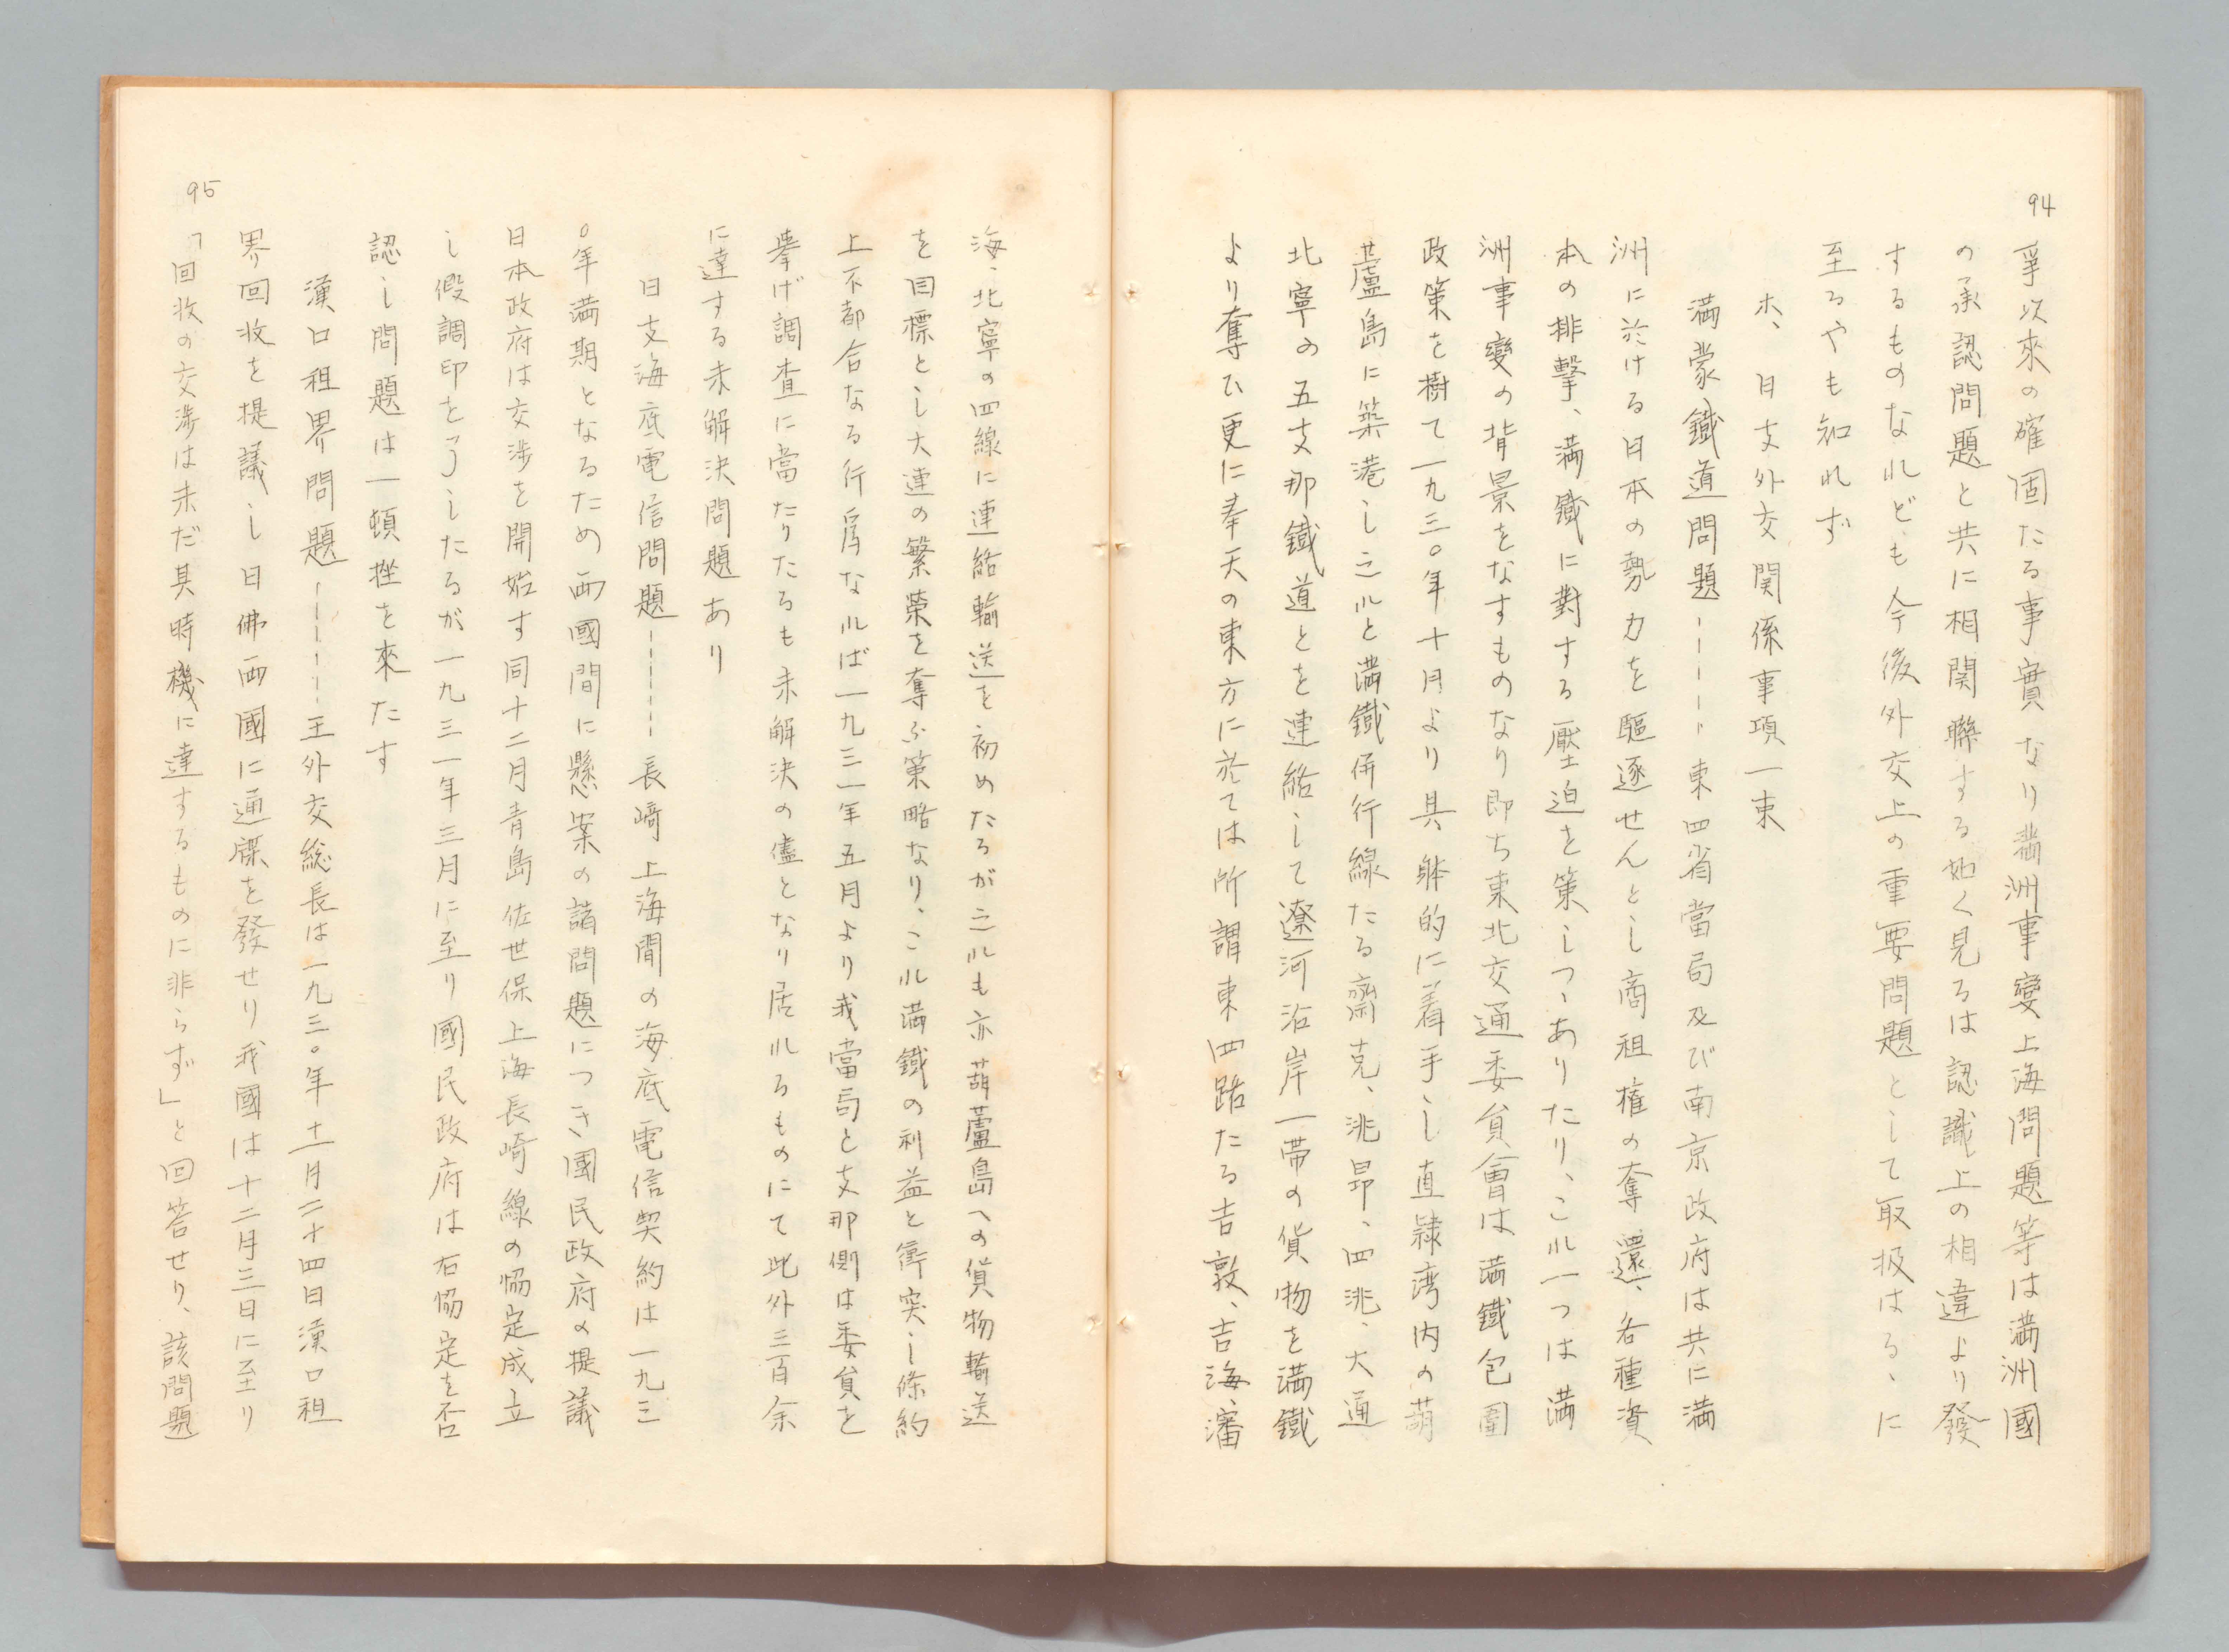 94
爭以來の確固たる事實なり満洲事變上海問題等は満洲國
の承認問題と共に相関聯する如く見るは認識上の相違より發
するものなれども今後外交上の重要問題として取扱はるゝに
至るやも知れず
ホ、日支外交関係事項一束
満蒙鐵道問題------東四省當局及び南京政府は共に満
洲に於ける日本の勢力を驅逐せんとし商租権の奪還、各種資
本の排撃、満鐵に對する壓迫を策しつゝありたり、これ一つは満
洲事變の背景をなすものなり即ち東北交通委員會は満鐵包圍
政策を樹て一九三〇年十月より具躰的に着手し直隷湾内の葫
蘆島に築港し之れと満鐵併行線たる齋克、洮昂、四洮、大通
北寧の五支那鐵道とを連絡して遼河沿岸一帯の貨物を満鐵
より奪ひ更に奉天の東方に於ては所謂東四路たる吉敦、吉海、瀋
海、北寧の四線に連絡輸送を初めたるが之れも亦葫蘆島への貨物輸送
を目標とし大連の繁榮を奪ふ策略なり、これ満鐵の利益と衝突し條約
上不都合なる行爲なれば一九三一年五月より我當局と支那側は委員を
擧げ調査に當たりたるも未解決の儘となり居れるものにて此外三百余
に達する未解決問題あり
日支海底電信問題------長崎上海間の海底電信契約は一九三
〇年満期となるため両國間に懸案の諸問題につき國民政府の提議
日本政府は交渉を開始す同十二月青島佐世保上海長崎線の協定成立
し假調印を了したるが一九三一年三月に至り國民政府は右協定を否
認し問題は一頓挫を來たす
漢口租界問題------王外交総長は一九三〇年十一月二十四日漢口租
界回收を提議し日佛両國に通牒を發せり我國は十二月三日に至り
「回收の交渉は未だ其時機に達するものに非らず」と回答せり、該問題
95